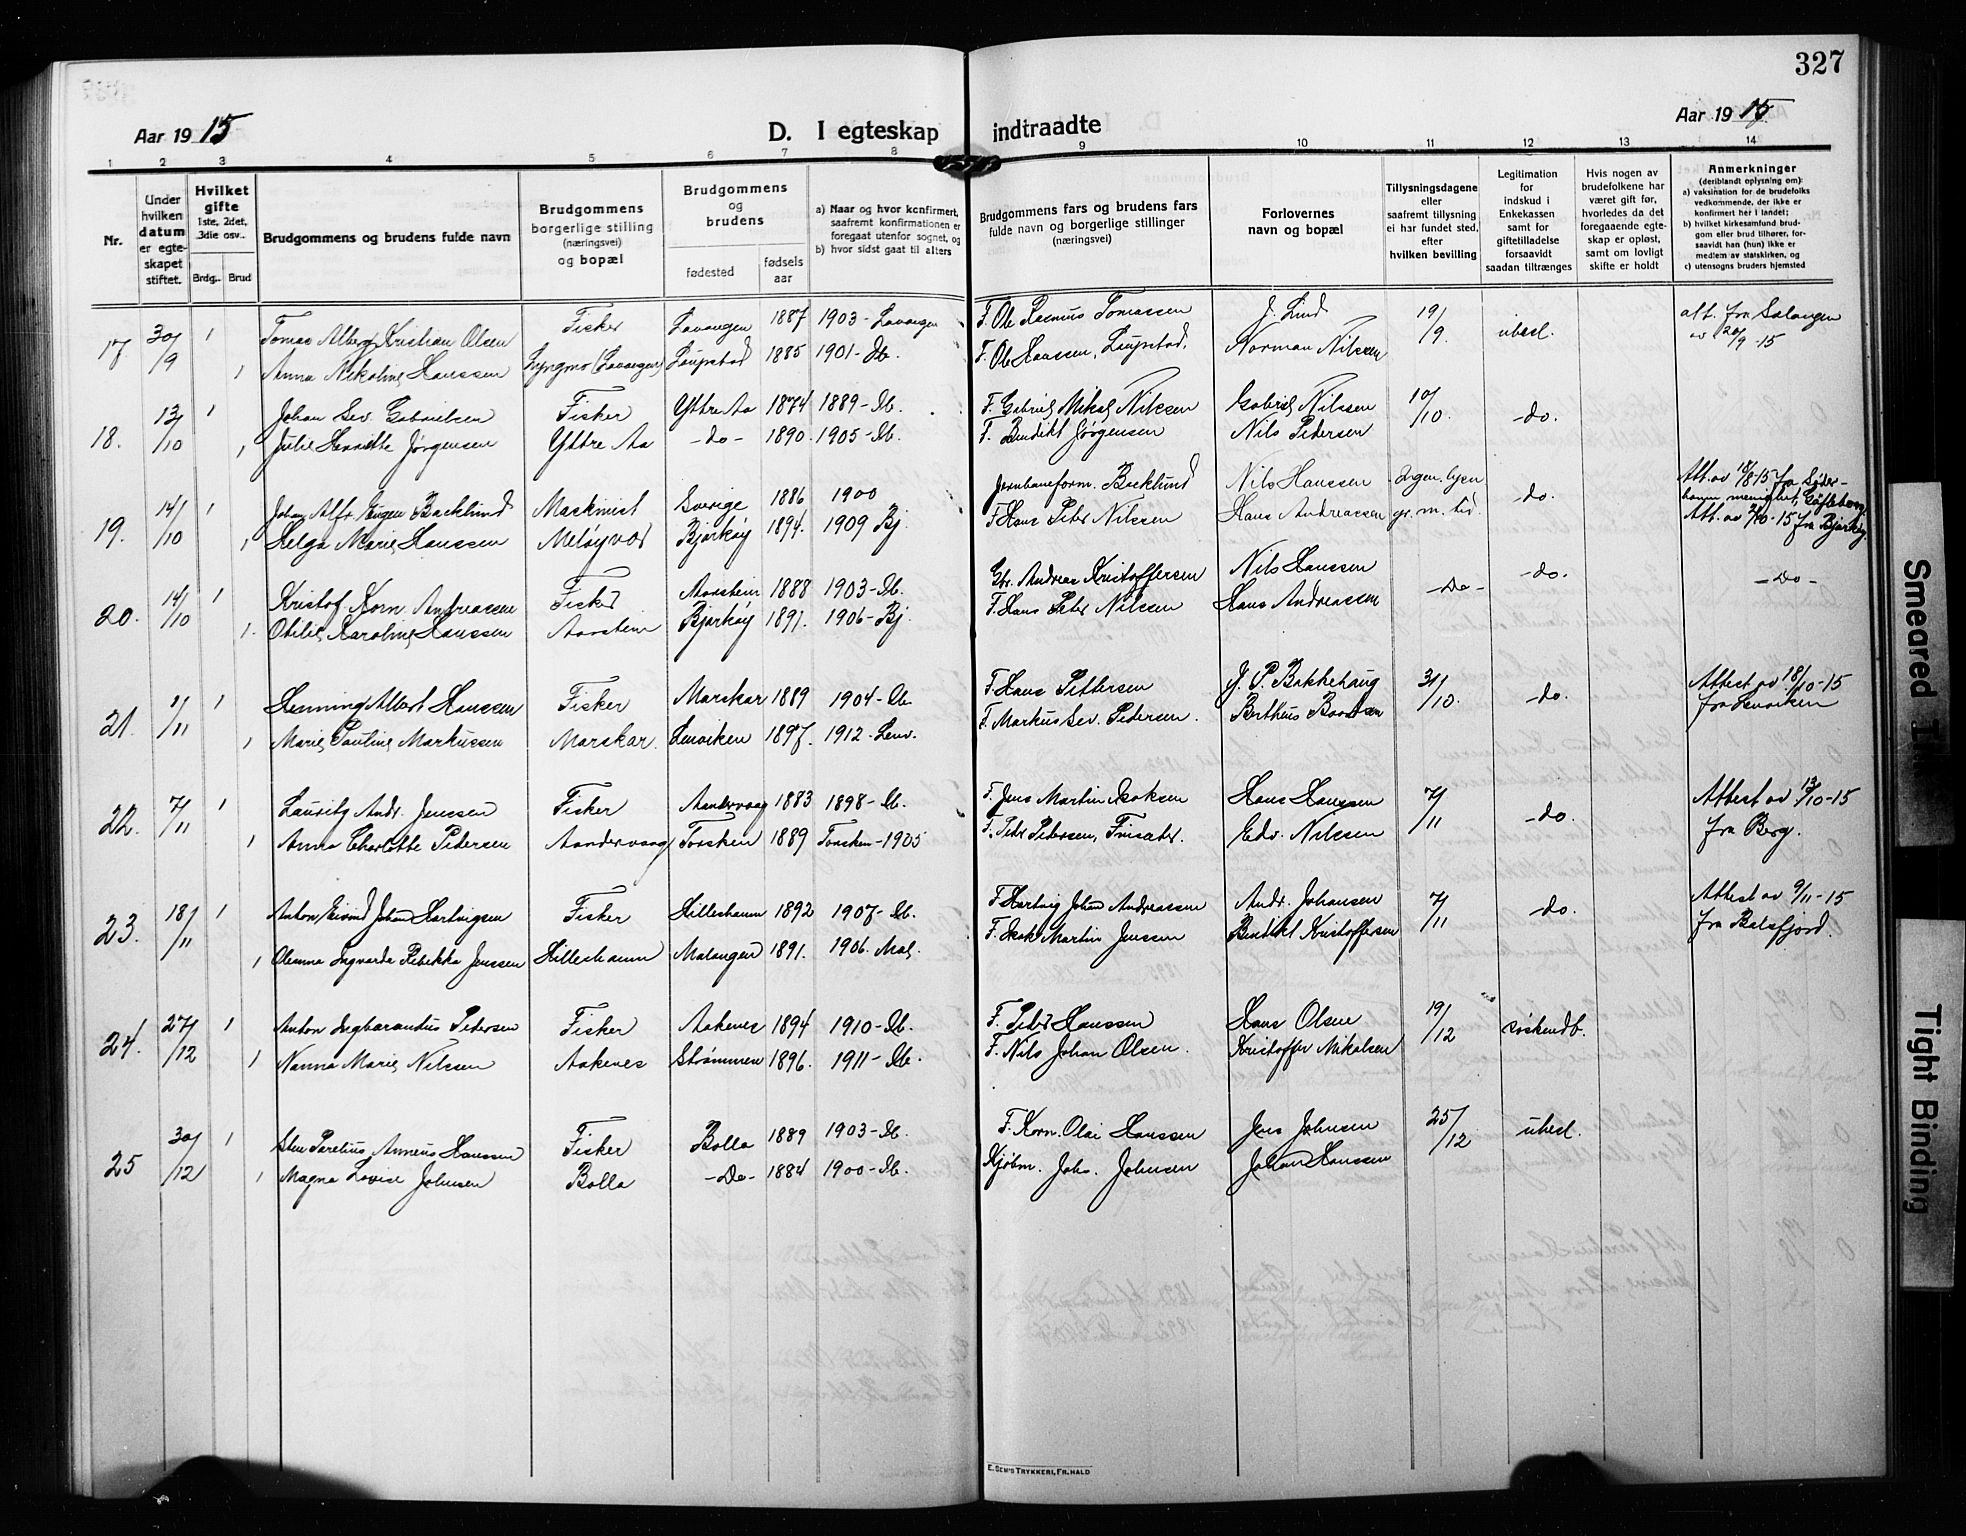 327
Aar 1915
D. I egteskap indtraadte
Aar 1915
1 2 3 4 5 6 7 8 9 10 11 12 13 14
Nr.
Under hvilken datum er egteskapet stiftet.
Hvilket gifte 1ste, 2det, 3die osv..
Brdg.. Brud
Brudgommens og brudens fulde navn
Brudgommens borgerlige stilling (næringsvei) og bopæl
Brudgommens og brudens
fødested
fødsels aar
a) Naar og hvor konfirmert, saafremt konfirmationen er foregaat utenfor sognet, og
b) hvor sidst gaat til alters
Brudgommens fars og brudens fars fulde navn og borgerlige stillinger (næringsvei)
Forlovernes navn og bopæl
Tillysningsdagene eller saafremt tillysning ei har fundet sted, efter hvilken bevilling
Legitimation for indskud i Enkekassen samt for giftetilladelse forsaavidt saadan tiltrænges
Hvis nogen av brudefolkene har været gift før, hvorledes da det foregaaende egteskap er opløst, samt om lovligt skifte er holdt
Anmerkninger (deriblandt oplysning om): a) vaksination for de brudefolks vedkommende, der ikke er konfirmert her i landet; b) hvilket kirkesamfund brudgom eller brud tilhører, forsaavidt han (hun) ikke er medlem av statskirken, og c) utensogns bruders hjemsted
17 30/9 1 Tomas Alberg Kristian Olsen Fisker Lavangen 1887 1903 - Lavangen F. Ole Rasmus Tomassen J. Lind 19/9 ubesl. att. fra Salangen
1 Anna Nikoline Hanssen Lyngmo (Lavangen) Laupstad 1885 1901 - Ib. F. Ole Hanssen, Laupstad. Norman Nilssen av 20/9 - 15
18. 13/10 1 Johan Sev. Gabrielsen Fisker Yttre Aa 1874 1889 - Ib. F. Gabriel Mikal Nilssen Gabriel Nilssen 10/10 - do.
1 Julie Henrette Jørgensen Yttre Aa - do - 1890 1905 - Ib. F. Bendikt Jørgensen Nils Pedersen
19. 14/10 1 Johan Alfr. Eugen Backlund Maskinist Sverige 1886 1900 Jernbaneform. Backlund Nils Hanssen - do. Att. av 18/8-15 fra Søderhamn menighet, Gøfleborg.
1 Helga Marie Hanssen Meløyvær Bjarkøy 1894. 1909 Bj. F. Hans Peter Nilssen Hans Andreassen Att. av 2/10-15 fra Bjarkøy.
20. 14/10 1 Kristof. Korn. Andreassen Fisker Aarstein 1888 1903 - Ib. Gbr. Andreas Kristoffersen Nils Hanssen - Do - - do. - Do -
1. Otelie Karoline Hanssen Aarstein Bjarkøy 1891. 1906 - Bj. F. Hans Peter Nilssen Hans Andreassen
21. 1/11 1 Henning Albert Hanssen Fisker Marskar 1889 1904 - Ib. F. Hans Pettersen J. P. Bakkehaug 31/10. do. Attest av 18/10-15
1 Marie Pauline Markussen Marskar. Lenviken 1897. 1912 - Lenv. F. Markus Sev. Pedersen. Berthus fra Lenviken
22. 7/11 1 Lauritz Andr. Jenssen Fisker Aandervaag 1883 1898 - Ib. F. Jens Martin Isaksen Hans Hanssen 7/11 - do. Attest av 13/10-15
1 Anna Charlotte Pedersen Aandervaag Torsken 1889 Torsken - 1905 F. Peter Petersen, Finsæter. Edv. Nilssen fra Berg.
23. 18/11 1 Anton Eivind Johan Hartvigsen Fisker Hilleshamn 1892 1907 - Ib. F. Hartvig Johan Andreassen Andr. Johansen 7/11 - do. Attest av 9/11 - 15
1 Oleanna Ingvarda Rebekka Jenssen Hilleshamn Malangen 1891. 1906. Mal. F. Isak Martin Jenssen Bendikt Kristoffersen fra Balsfjord.
24. 27/12 1 Anton Ingbarandus Pedersen Fisker Aakenes 1894 1910 - Ib. F. Peder Hanssen Hans Olsen 19/12 søskendb.
1 Nanna Marie Nilssen Aakenes Strømmen 1896. 1911 - Ib. F. Nils Johan Olsen. Kristoffer Nikolsen
25 30/12 1 Sten Parelius Anneus Hanssen Fisker Bolla 1889 1903 - Ib. F. Korn. Olai Hanssen Jens Johnsen 25/12 ubesl.
1 Magna Lovise Johnsen Bolla - Do - 1884 1900 - Ib. Kjøbm. Johs. Johnsen Johan Hanssen
E. SEM'S TRYKKERI, FR.HALD
Smeared Ink
Tight Binding